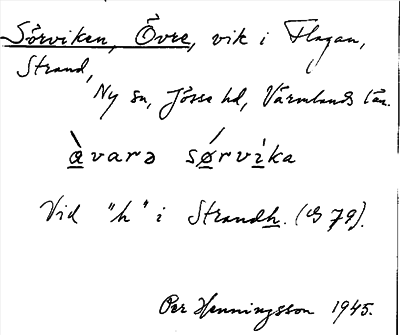 Sörviken, Övre, vik i Flagan,
Strand,
Ny sn, Jösse hd, Värmlands län.
æ̀varə sǿrvìka
Vid "h" i Strandh. (G 79).
Per Henningsson 1945.